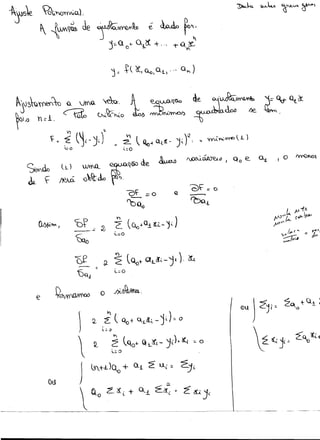 Ajuste Polinomial.
A função de ajustamento é dado por.
y = a₀ + a₁x + ... + aₙxⁿ
y = f(x, a₀, a₁, ... aₙ)
Ajustamento a uma reta. A equação de ajustamento y = a₀ + a₁x
para n=1. Pelo critério dos mínimos quadrados se tem.
F = Σ (yᵢ - yᵢ)² = Σ (a₀ + a₁xᵢ - yᵢ)² = mínimo (1)
Sendo (1) uma equação de duas variáveis, a₀ e a₁, o menor
de F será obtido por.
∂F/∂a₀ = 0 e ∂F/∂a₁ = 0
assim, ∂F/∂a₀ = 2 Σ (a₀ + a₁xᵢ - yᵢ)
∂F/∂a₁ = 2 Σ (a₀ + a₁xᵢ - yᵢ). xᵢ
e formamos o sistema.
2 Σ (a₀ + a₁xᵢ - yᵢ) = 0
2 Σ (a₀ + a₁xᵢ - yᵢ). xᵢ = 0
ou Σyᵢ = Σa₀ + a₁
Σxᵢyᵢ = Σa₀xᵢ +
ou
(n+1)a₀ + a₁ Σxᵢ = Σyᵢ
a₀ Σxᵢ + a₁ Σxᵢ² = Σxᵢyᵢ